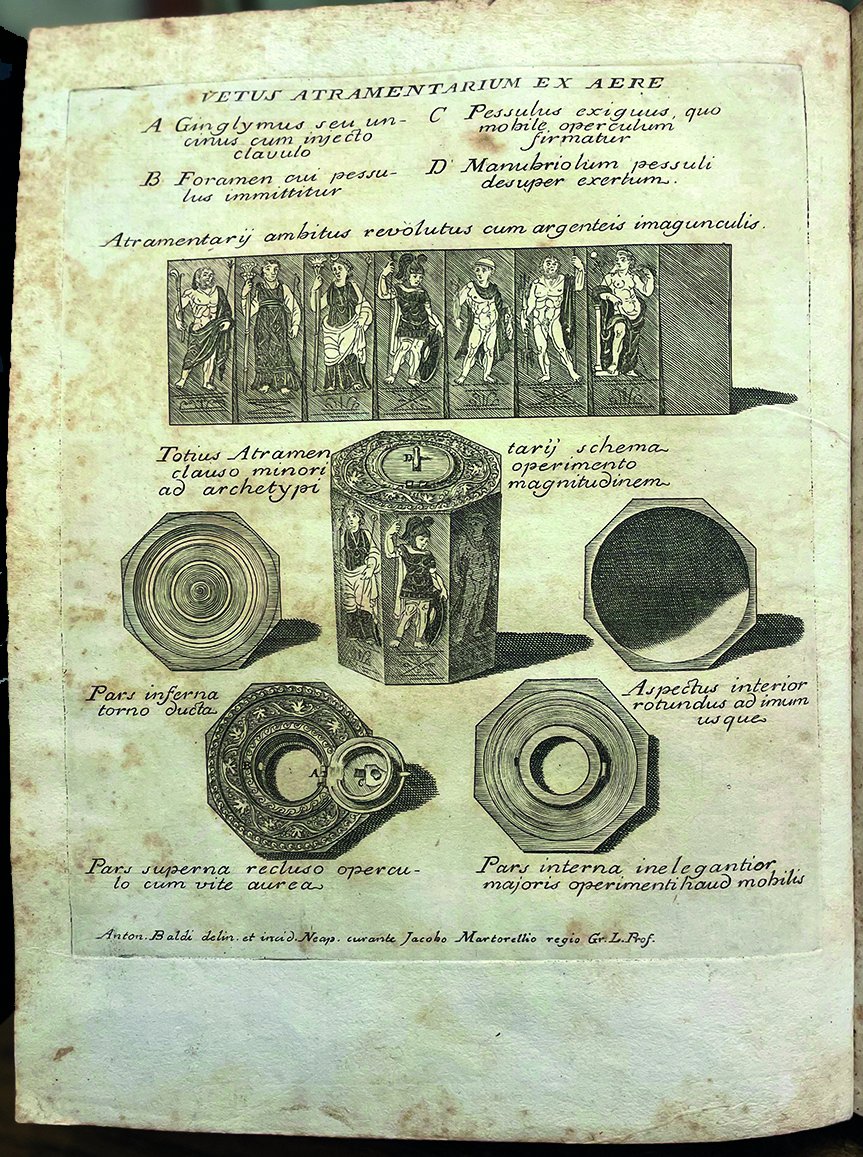 VETUS ATRAMENTARIUM EX AERE
A Ginglymus seu un-
cinus cum injecto
clavulo
B Foramen cui pessu-
lus immittitur
C Pessulus exiguus, quo
mobile operculum
firmatur
D Manubriolum pessuli
desuper exertum.
Atramentarij ambitus revolutus cum argenteis imagunculis.
Totius Atramen
clauso minori
ad archetypi
tarij schema
operimento
magnitudinem
D
Pars inferna
torno ducta
Aspectus interior
rotundus ad imum
usque
A
C
Pars superna recluso opercu-
lo cum vite aurea
Pars interna inelegantior
majoris operimenti haud mobilis
Anton. Baldi delin. et incid. Neap. curante Jacobo Martorellio regio Gr. L. Prof.